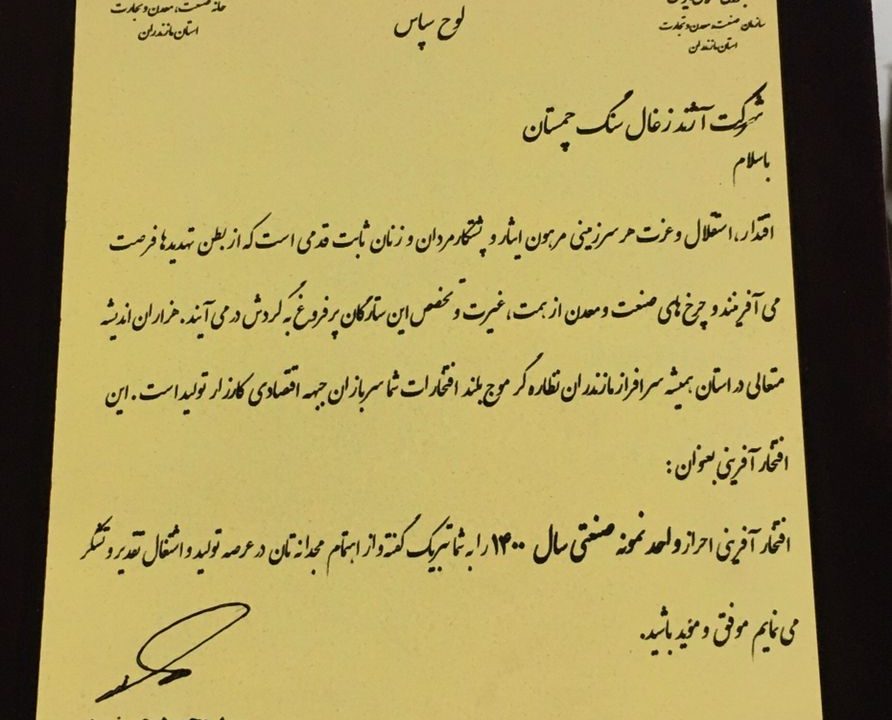 سازمان صنعت، معدن و تجارت
استان مازندران
لوح سپاس
خانه صنعت، معدن و تجارت
استان مازندران
شرکت آرتند زغال سنگ چمستان
باسلام
اقتدار، استقلال و عزت هر سرزمینی مرهون ایثار و پشتکار مردان و زنان ثابت قدمی است که از بطن تهدیدها فرصت
می آفرینند و چرخ های صنعت و معدن از همت، غیرت و تخصص این ستارگان پر فروغ به گردش در می آیند. هزاران اندیشه
متعالی در استان همیشه سرافراز مازندران نظاره گر موج بلند افتخارات شما سربازان جبهه اقتصادی کارزار تولید است. این
افتخار آفرینی بعنوان:
افتخار آفرینی احراز واحد نمونه صنعتی سال ۱۴۰۰ را به شما تبریک گفته و از اهتمام مجدانه تان در عرصه تولید و اشتغال تقدیر و تشکر
می نمایم موفق و موید باشید.